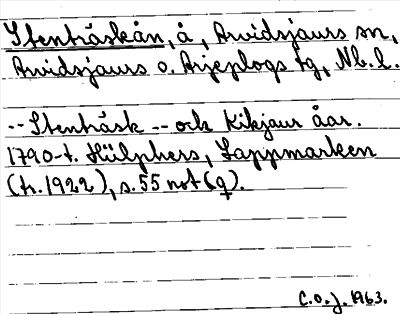 Stenträskån, å, Arvidsjaurs sn,
Arvidsjaurs o. Arjeplogs tg, Nb.l.
-- Stenträsk -- och Kikjaur åar.
1790-t. Hülphers, Lappmarken
(tr. 1922), s. 55 not (q).
C.O.J. 1963.